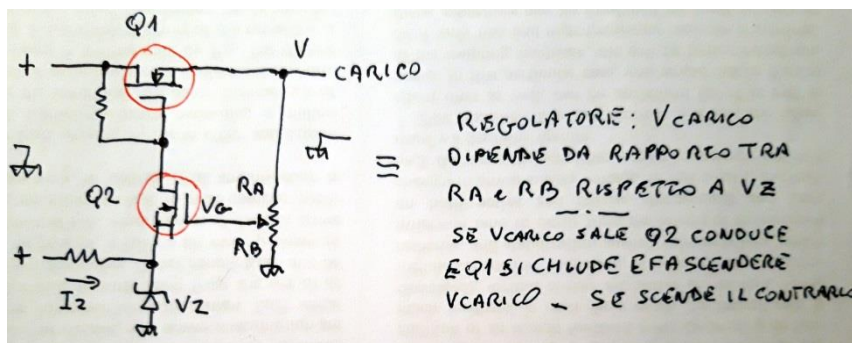 Q1
+
V
CARICO
Q2
VG
RA
RB
+
IZ
VZ
REGOLATORE: VCARICO
DIPENDE DA RAPPORTO TRA
RA E RB RISPETTO A VZ
SE VCARICO SALE Q2 CONDUCE
E Q1 SI CHIUDE E FA SCENDERE
VCARICO - SE SCENDE IL CONTRARIO